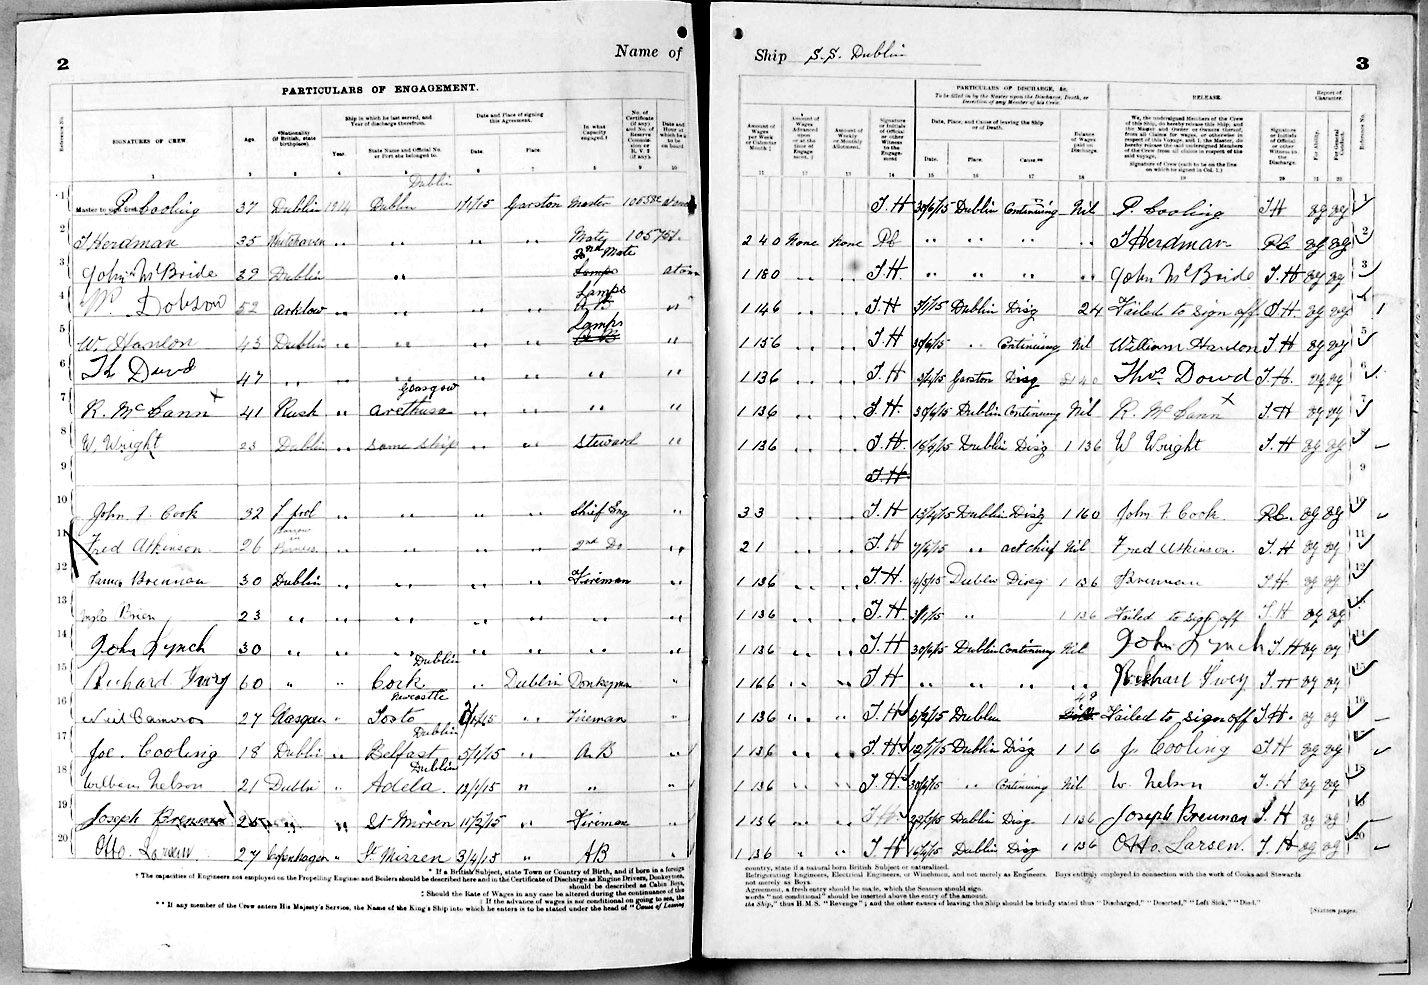 2
Name of
PARTICULARS OF ENGAGEMENT.
Reference No.
SIGNATURES OF CREW
Age.
*Nationality (if British, state birthplace).
Ship in which he last served, and Year of discharge therefrom.
Year.
State Name and Official No. or Port she belonged to.
Date and Place of signing this Agreement.
Date.
Place.
In what Capacity engaged.†
No. of Certificate (if any) and No. of Reserve Commission or R.V.2 (if any).
Date and Hour at which he is to be on board
1 2 3 4 5 6 7 8 9 10
Dublin
1 Master to sign first. P. Cooling 37 Dublin 1914 Dublin 1/1/15 Garston Master
2 T Herdman 35 Whitehaven " " " " Mate
2nd Mate
3 John McBride 39 Dublin " Lamps at once
Lamps
4 Dobson 52 Arklow " " " " "
Lamps
5 W. Hanlon 43 Dublin " " " " A B "
6 Th Dowd 47 " " " " " " "
Glasgow
7 R. McCann x 41 Rush " Arethusa " " " "
8 W. Wright 23 Dublin " Same Ship " " Steward "
9
10 John F. Cook 32 L'pool " " " " Chief Eng "
11 Fred Atkinson 26 Barrow in Furness " " " " 2nd Do "
12 James Brennan 30 Dublin " " " " Fireman "
13 Brien 23 " " " " " " "
14 John Lynch 30 " " " " " " "
Dublin
15 Richard Furey 60 " " Cork " Dublin Donkeyman "
Newcastle
16 Neil Cameron 27 Glasgow " Tosto " Fireman "
Dublin
17 Joe. Cooling 18 Dublin " Belfast 5/1/15 " A B "
Dublin
18 William Nelson 21 Dublin " Adela 13/1/15 " " "
19 Joseph Brennan 25 " " St Mirren 11/2/15 " Fireman "
20 Otto Larsen 27 Copenhagen " St. Mirren 3/4/15 " AB "
* If a British Subject, state Town or Country of Birth, and if born in a foreign
† The capacities of Engineers not employed on the Propelling Engines and Boilers should be described here and in the Certificate of Discharge as Engine Drivers, Donkeymen,
should be described as Cabin Boys,
‡ Should the Rate of Wages in any case be altered during the continuance of this
‡ If the advance of wages is not conditional on going to sea, the
** If any member of the Crew enters His Majesty's Service, the Name of the King's Ship into which he enters is to be stated under the head of "Cause of Leaving
Ship S.S. Dublin
3
PARTICULARS OF DISCHARGE, &c.
To be filled in by the Master upon the Discharge, Death, or Desertion of any Member of his Crew.
RELEASE.
Report of Character.
Amount of Wages per Week or Calendar Month.‡
Amount of Wages Advanced upon or at the time of Engagement.‡
Amount of Weekly or Monthly Allotment.
Signature or Initials of Official or other Witness to the Engagement
Date, Place, and Cause of leaving the Ship or of Death.
Date.
Place.
Cause.**
Balance of Wages paid on Discharge.
We, the undersigned Members of the Crew of this Ship, do hereby release this Ship, and the Master and Owner or Owners thereof, from all Claims for wages, or otherwise in respect of this Voyage, and I, the Master, do hereby release the said undersigned Members of the Crew from all claims in respect of the said voyage.
Signature of Crew (each to be on the line on which he signed in Col. 1.)
Signature or Initials of Official or other Witness to the Discharge.
For Ability.
For General Conduct.
Reference No.
11 12 13 14 15 16 17 18 19 20 21 22
T.H 30/6/15 Dublin Continuing Nil P. Cooling T H vg vg 1
2 4 0 None None P.C " " " " T Herdman P.C vg vg 2
1 18 0 " " T.H. " " " " John McBride T.H vg vg 3
1 14 6 " " T.H Dublin Disg 2 4 Failed to sign off T.H. vg vg 4
1 15 6 " " T.H 30/6/15 " Continuing Nil William Hanlon T.H vg vg 5
1 13 6 " " T.H Garston Disg Thos. Dowd T.H. vg vg 6
1 13 6 " " T.H. 30/6/15 Dublin Continuing Nil R. McCann x T.H vg vg 7
1 13 6 " " T.H. Dublin Disg 1 13 6 W Wright T.H vg vg 8
T.H 9
3 3 " " T.H Dublin Disg 1 16 0 John F. Cook P.C. vg vg 10
2 1 " " T.H " act chief Nil Fred Atkinson T.H vg vg 11
1 13 6 " " T.H. Dublin Disg 1 13 6 Brennan T H vg vg 12
1 13 6 " " T.H. " 1 13 6 Failed to sign off T H vg vg 13
1 13 6 " " T.H 30/6/15 Dublin Continuing Nil John Lynch T.H vg vg 14
1 16 6 " " T.H " " " " Richard Furey T.H vg vg 15
1 13 6 " " T.H Dublin 4 9 Failed to sign off T.H. vg vg 16
1 13 6 " " T.H Dublin Disg 1 1 6 Jo Cooling T.H vg vg 17
1 13 6 " " T.H. 30/6/15 " Continuing Nil W. Nelson T. H vg vg 18
1 13 6 " " T.H Dublin Disg 1 13 6 Joseph Brennan T.H vg vg 19
1 13 6 " " T.H Dublin Disg 1 13 6 Otto Larsen. T.H vg vg 20
country, state if a natural born British Subject or naturalized.
Refrigerating Engineers, Electrical Engineers, or Winchmen, and not merely as Engineers. Boys entirely employed in connection with the work of Cooks and Stewards
not merely as Boys.
Agreement, a fresh entry should be made, which the Seamen should sign.
words "not conditional" should be inserted above the entry of the amount.
the Ship," thus H.M.S. "Revenge"; and the other causes of leaving the Ship should be briefly stated thus "Discharged," "Deserted," "Left Sick," "Died."
[Sixteen pages.